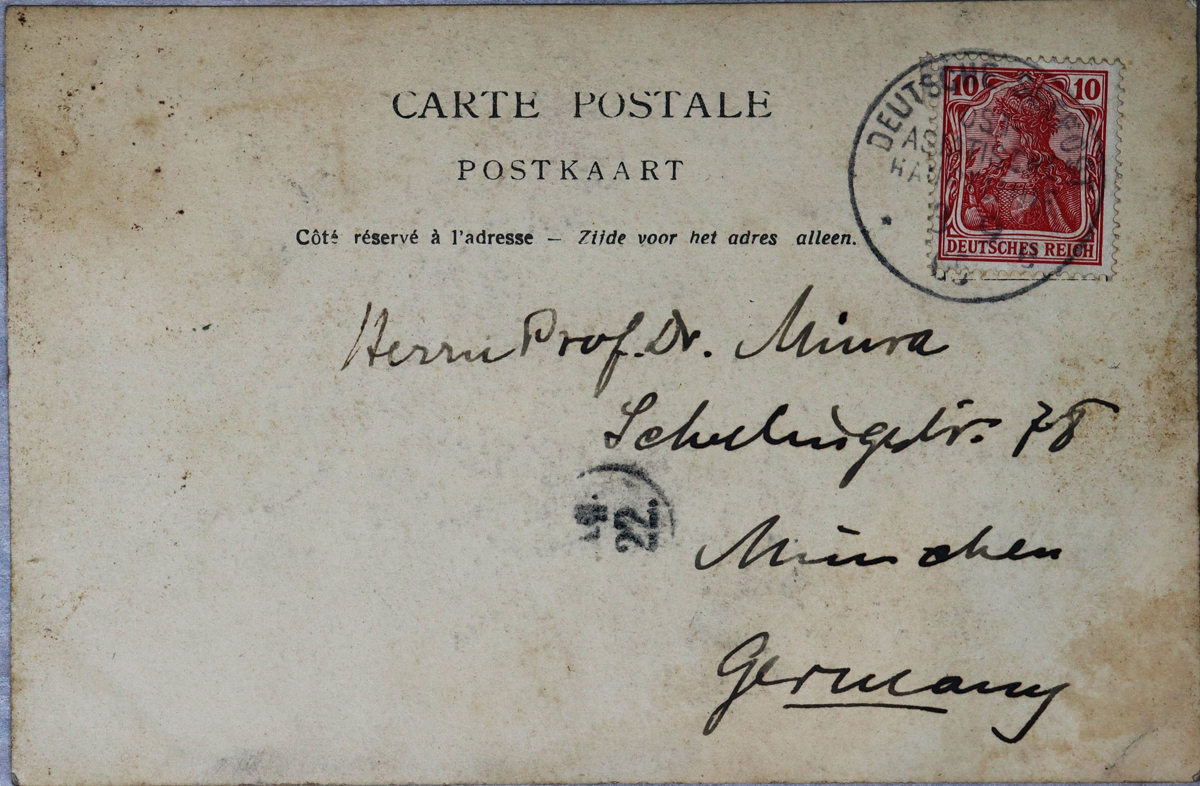 CARTE POSTALE
POSTKAART
Côté réservé à l'adresse – Zijde voor het adres alleen.
10 10
DEUTSCHES REICH
DEUTSCHE
Herrn Prof. Dr. Miura
Schellingstr. 78
München
Germany
22.